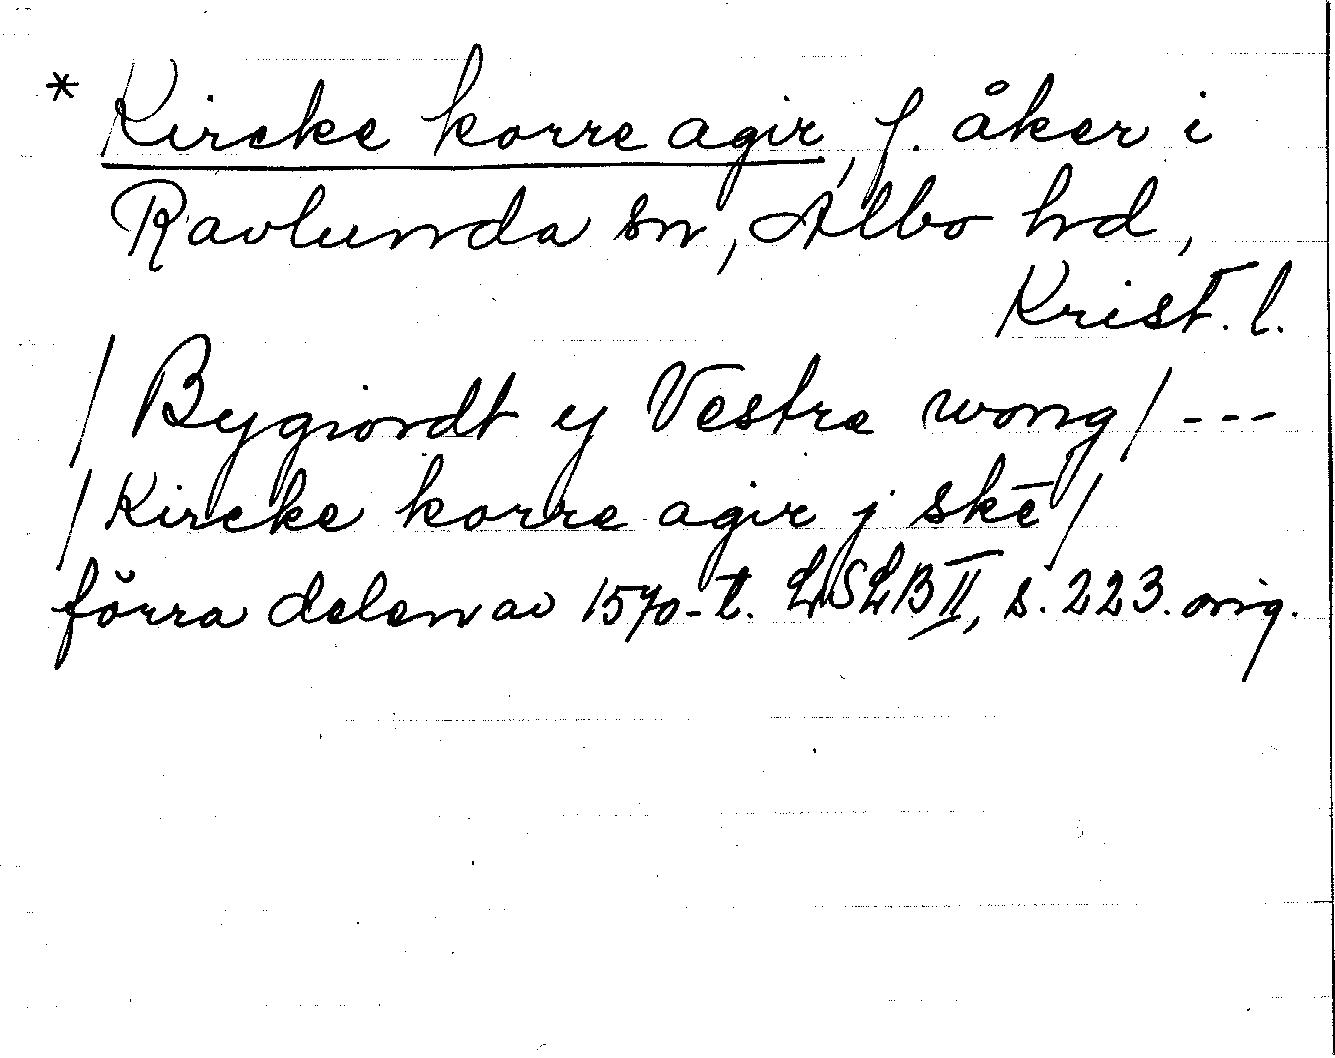 * Kircke korre agir, f. åker i
Ravlunda sn, Albo hd,
Krist. l.
/ Bygiordt ej Vestre wong / ---
/ Kircke korre agir j skē /
förra delen av 1570-t. LSLB II, s. 223. orig.